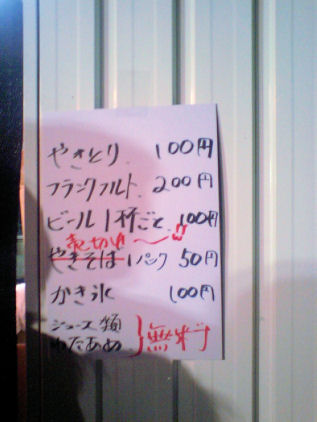 やきとり 100円
フランクフルト 200円
ビール1杯ごと 100円
売り切れ
やきそば1パック 50円
かき氷 100円
ジュース類
わたあめ
無料